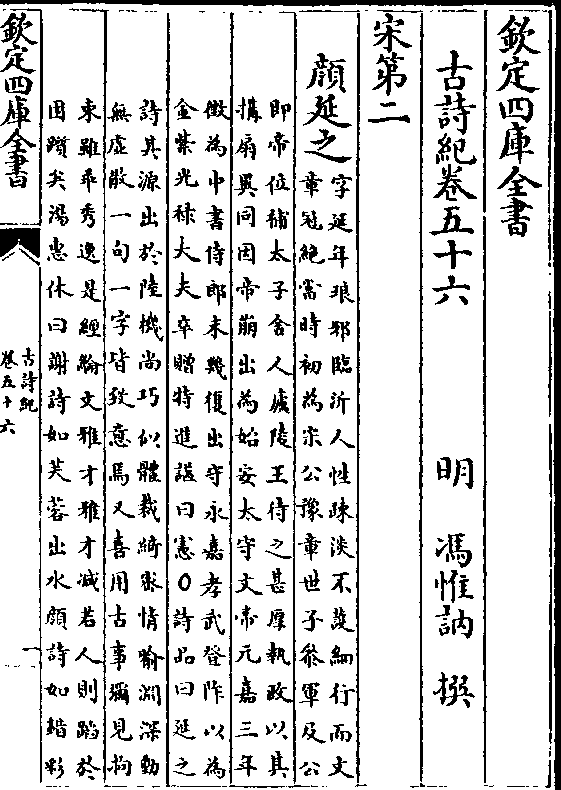 欽定四庫全書
古詩紀卷五十六 明 馮惟訥 撰
宋第二
顔延之
字延年琅邪臨沂人性疎淡不䕶細行而文
章冠絶當時初為宋公豫章世子參軍及公
即帝位補太子舍人廬陵王待之甚厚執政以其
搆扇異同因帝崩出為始安太守文帝元嘉三年
徴為中書侍郎未幾復出守永嘉孝武登阼以為
金紫光祿大夫卒贈特進諡曰憲○詩品曰延之
詩其源出於陸機尚巧似體裁綺密情喻淵深動
無虛散一句一字皆致意焉又喜用古事彌見拘
束雖乖秀逸是經綸文雅才雅才減若人則蹈於
困躓矣湯惠休曰謝詩如芙蓉出水顔詩如錯彩
欽定四庫全書
古詩紀
卷五十六
一